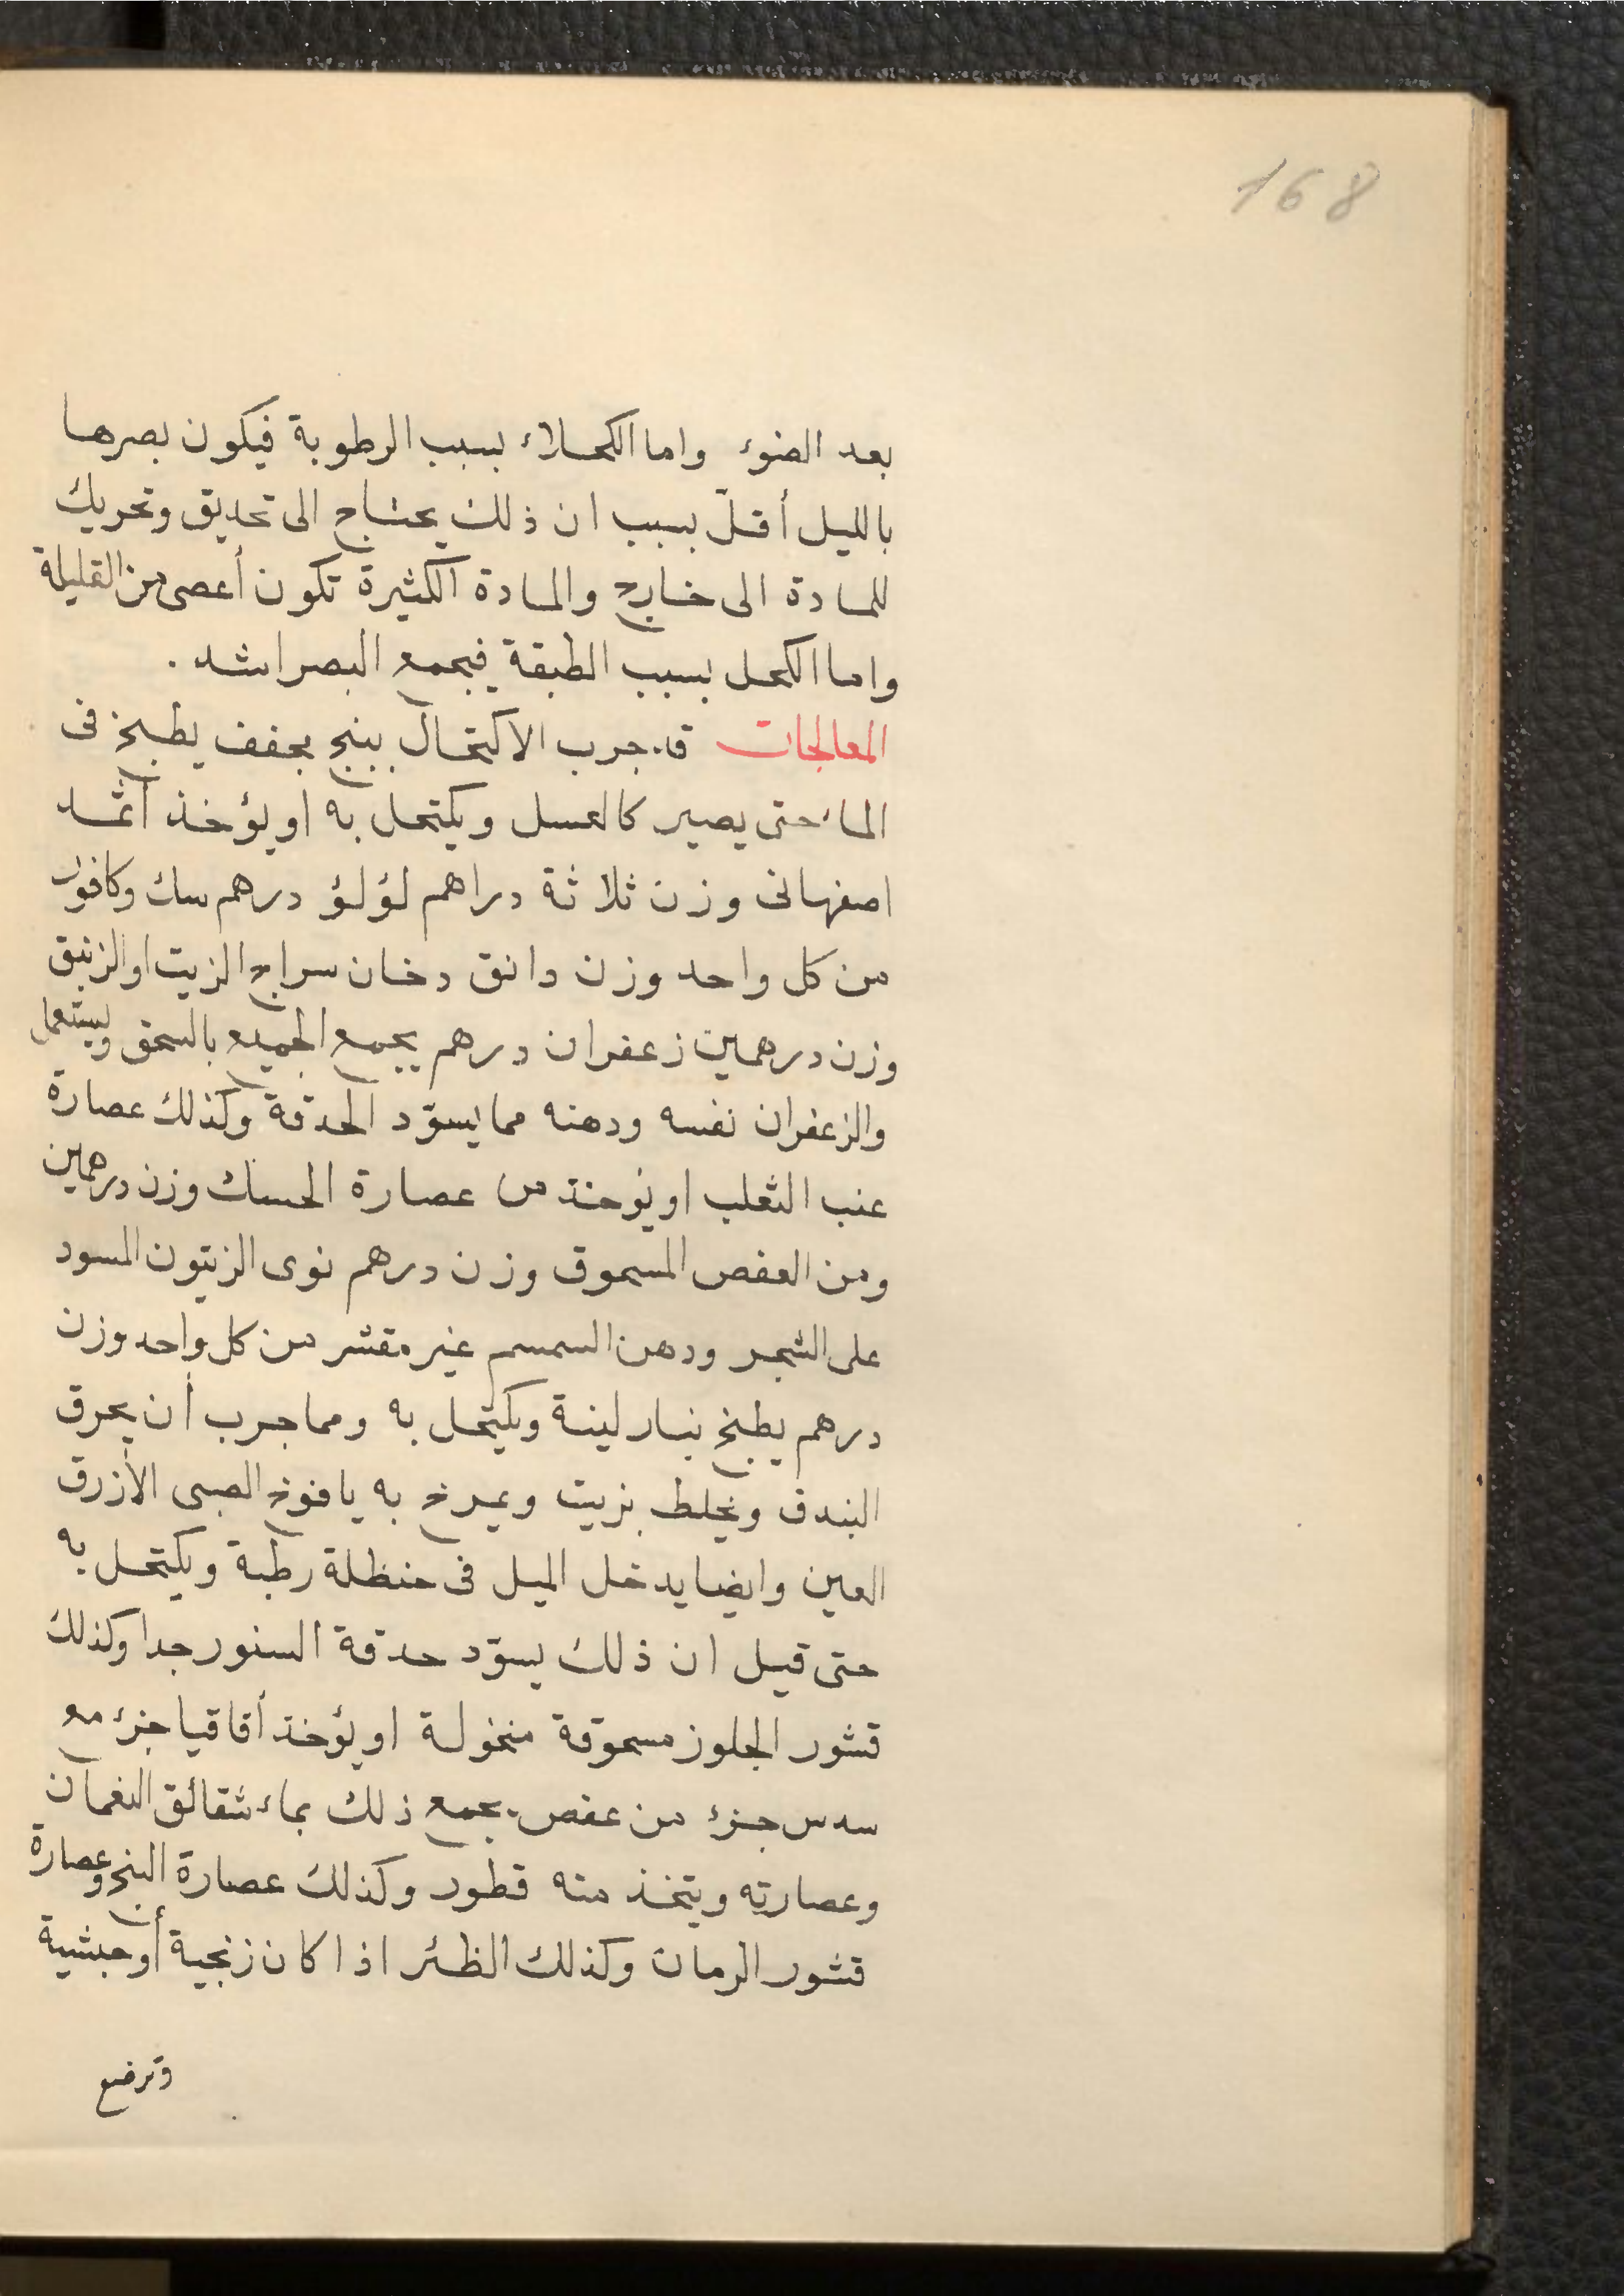 168
بعد الضوء واما الكحلاء بسبب الرطوبة فيكون بصرها
بالليل أقلّ بسبب ان ذلك يحتاج الى تحديق وتحريك
للمادة الى خارج والمادة الكثيرة تكون أعصى من القليلة
واما الكحل بسبب الطبقة فيجمع البصر اشد .
المعالجات قد جرب الاكتحال ببنج مجفف يطبخ فى
الماء حتى يصير كالعسل ويكتحل به او يؤخذ اثمد
اصفهانى وزن ثلاثة دراهم لؤلؤ درهم سك وكافور
من كل واحد وزن دانق دخان سراج الزيت او الزنبق
وزن درهمين زعفران درهم يجمع الجميع بالسحق ويستعمل
والزعفران نفسه ودهنه مما يسوّد الحدقة وكذلك عصارة
عنب الثعلب او يوخذ من عصارة الحسك وزن درهمين
ومن العفص المسحوق وزن درهم نوى الزيتون المسود
على الشجر ودهن السمسم غير مقشر من كل واحد وزن
درهم يطبخ بنار لينة ويكتحل به ومما جرب أن يحرق
البندق ويخلط بزيت ويمرخ به يافوخ الصبى الأزرق
العين وايضا يدخل الميل فى حنظلة رطبة ويكتحل به
حتى قيل ان ذلك يسوّد حدقة السنور جدا وكذلك
قشور الجلوز مسحوقة منخولة او يؤخذ أقاقيا جزء مع
سدس جزء من عفص يجمع ذلك بماء شقائق النعمان
وعصارته ويتخذ منه قطور وكذلك عصارة البنج وعصارة
قشور الرمان وكذلك الظئر اذا كان زنجية أو حبشية
وترضع